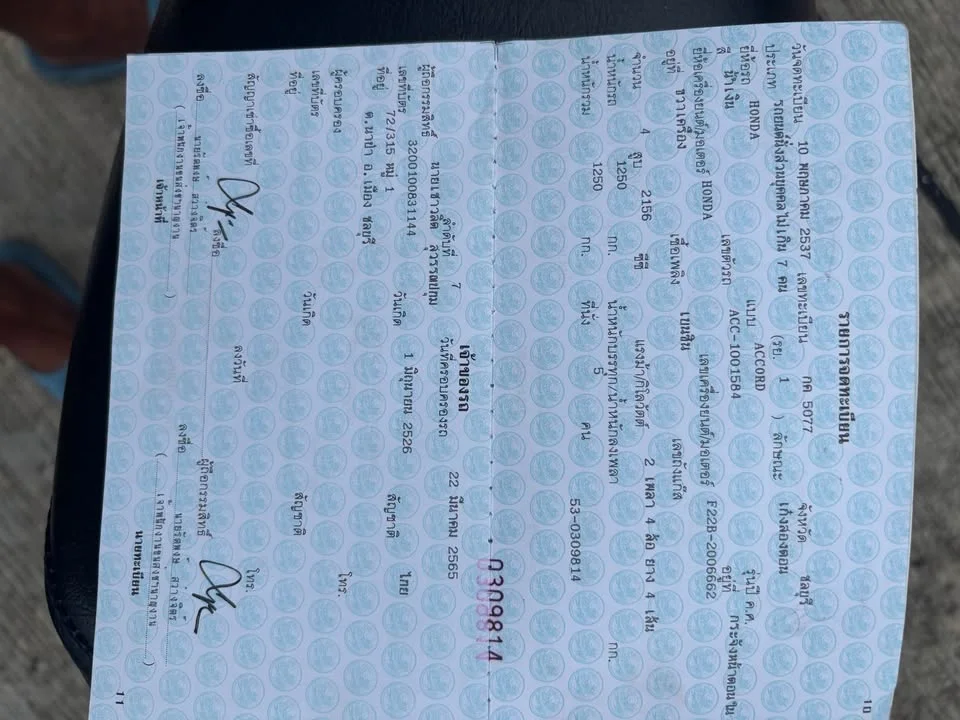 10
รายการจดทะเบียน
วันจดทะเบียน 10 พฤษภาคม 2537 เลขทะเบียน กค 5077 จังหวัด ชลบุรี
ประเภท รถยนต์นั่งส่วนบุคคลไม่เกิน 7 คน (รย. 1 ) ลักษณะ เก๋งสองตอน
ยี่ห้อรถ HONDA แบบ ACCORD รุ่นปี ค.ศ.
สี น้ำเงิน เลขตัวรถ ACC-1001584 อยู่ที่ กระจังหน้าตอนใน
ยี่ห้อเครื่องยนต์/มอเตอร์ HONDA เลขเครื่องยนต์/มอเตอร์ F22B-2006662
อยู่ที่ ขวาเครื่อง เชื้อเพลิง เบนซิน เลขถังแก๊ส
จำนวน 4 สูบ 2156 ซีซี แรงม้า/กิโลวัตต์ 2 เพลา 4 ล้อ ยาง 4 เส้น
น้ำหนักรถ 1250 กก. น้ำหนักบรรทุก/น้ำหนักลงเพลา กก.
น้ำหนักรวม 1250 กก. ที่นั่ง 5 คน 53-0309814
0309814
เจ้าของรถ
ลำดับที่ 7 วันที่ครอบครองรถ 22 มีนาคม 2565
ผู้ถือกรรมสิทธิ์ นายเชาวลิต สุวรรณปทุม
เลขที่บัตร 3200100831144 วันเกิด 1 มิถุนายน 2526 สัญชาติ ไทย
ที่อยู่ 72/315 หมู่ 1
ต.นาป่า อ.เมือง ชลบุรี โทร.
ผู้ครอบครอง
เลขที่บัตร วันเกิด สัญชาติ
ที่อยู่ โทร.
สัญญาเช่าซื้อเลขที่ ลงวันที่
ลงชื่อ ผู้ถือกรรมสิทธิ์
ลงชื่อ ลงชื่อ
เจ้าพนักงานขนส่งชำนาญงาน เจ้าพนักงานขนส่งชำนาญงาน
เจ้าหน้าที่ นายทะเบียน
11